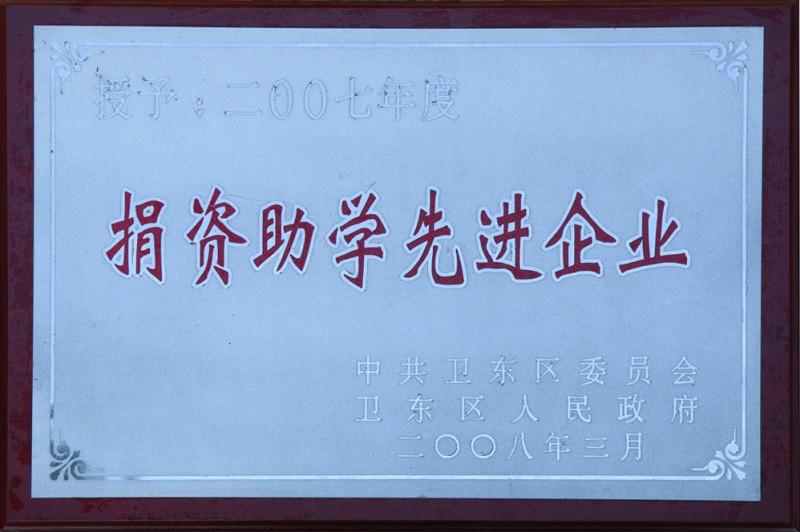 授予：二00七年度
捐资助学先进企业
中共卫东区委员会
卫东区人民政府
二〇〇八年三月